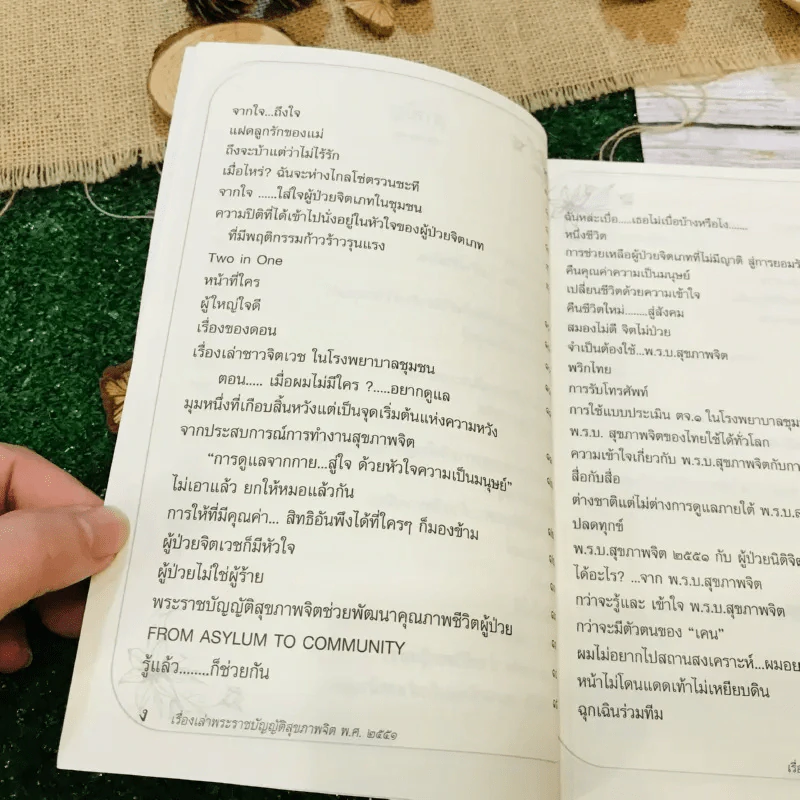 จากใจ...ถึงใจ
แฝดลูกรักของแม่
ถึงจะบ้าแต่ว่าไม่ไร้รัก
เมื่อไหร่? ฉันจะห่างไกลโซ่ตรวนซะที
จากใจ ......ใส่ใจผู้ป่วยจิตเภทในชุมชน
ความปิติที่ได้เข้าไปนั่งอยู่ในหัวใจของผู้ป่วยจิตเภท
ที่มีพฤติกรรมก้าวร้าวรุนแรง
Two in One
หน้าที่ใคร
ผู้ใหญ่ใจดี
เรื่องของดอน
เรื่องเล่าชาวจิตเวช ในโรงพยาบาลชุมชน
ตอน..... เมื่อผมไม่มีใคร ?.....อยากดูแล
มุมหนึ่งที่เกือบสิ้นหวังแต่เป็นจุดเริ่มต้นแห่งความหวัง
จากประสบการณ์การทำงานสุขภาพจิต
“การดูแลจากกาย...สู่ใจ ด้วยหัวใจความเป็นมนุษย์”
ไม่เอาแล้ว ยกให้หมอแล้วกัน
การให้ที่มีคุณค่า... สิทธิอันพึงได้ที่ใครๆ ก็มองข้าม
ผู้ป่วยจิตเวชก็มีหัวใจ
ผู้ป่วยไม่ใช่ผู้ร้าย
พระราชบัญญัติสุขภาพจิตช่วยพัฒนาคุณภาพชีวิตผู้ป่วย
FROM ASYLUM TO COMMUNITY
รู้แล้ว........ก็ช่วยกัน
ง เรื่องเล่าพระราชบัญญัติสุขภาพจิต พ.ศ. ๒๕๕๑
ฉันหละเบื่อ.....เธอไม่เบื่อบ้างหรือไง.......
หนึ่งชีวิต
การช่วยเหลือผู้ป่วยจิตเภทที่ไม่มีญาติ สู่การยอมรั
คืนคุณค่าความเป็นมนุษย์
เปลี่ยนชีวิตด้วยความเข้าใจ
คืนชีวิตใหม่........สู่สังคม
สมองไม่ดี จิตไม่ป่วย
จำเป็นต้องใช้...พ.ร.บ.สุขภาพจิต
พริกไทย
การรับโทรศัพท์
การใช้แบบประเมิน ตจ.๑ ในโรงพยาบาลชุม
พ.ร.บ. สุขภาพจิตของไทยใช้ได้ทั่วโลก
ความเข้าใจเกี่ยวกับ พ.ร.บ.สุขภาพจิตกับกา
สื่อกับสื่อ
ต่างชาติแต่ไม่ต่างการดูแลภายใต้ พ.ร.บ.ส
ปลดทุกข์
พ.ร.บ.สุขภาพจิต ๒๕๕๑ กับ ผู้ป่วยนิติจิต
ได้อะไร? ...จาก พ.ร.บ.สุขภาพจิต
กว่าจะรู้และ เข้าใจ พ.ร.บ.สุขภาพจิต
กว่าจะมีตัวตนของ “เคน”
ผมไม่อยากไปสถานสงเคราะห์...ผมอย
หน้าไม่โดนแดดเท้าไม่เหยียบดิน
ฉุกเฉินร่วมทีม
เรื่อ